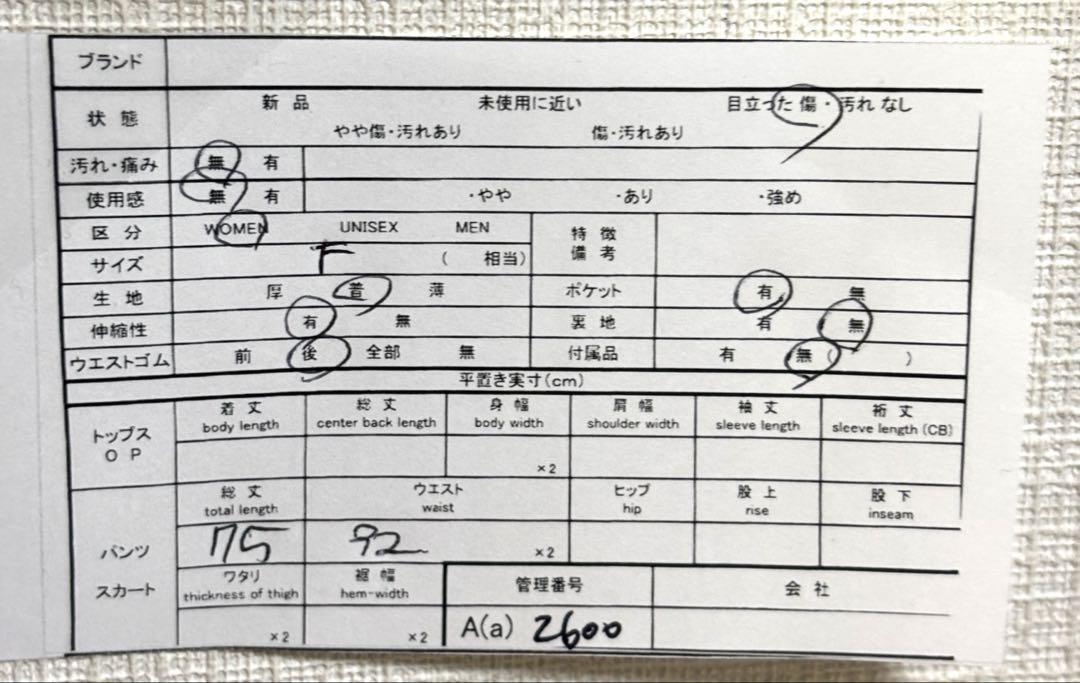 ブランド
状態 新品 未使用に近い 目立った傷・汚れなし
やや傷・汚れあり 傷・汚れあり
汚れ・痛み 無 有
使用感 無 有 ・やや ・あり ・強め
区分 WOMEN UNISEX MEN 特徴
備考
サイズ F ( 相当)
生地 厚 普 薄 ポケット 有 無
伸縮性 有 無 裏地 有 無
ウエストゴム 前 後 全部 無 付属品 有 無( )
平置き実寸(cm)
トップス
OP
着丈 総丈 身幅 肩幅 袖丈 裄丈
body length center back length body width shoulder width sleeve length sleeve length (CB)
×2
パンツ
スカート
総丈 ウエスト ヒップ 股上 股下
total length waist hip rise inseam
75 92 ×2
ワタリ 裾幅 管理番号 会社
thickness of thigh hem-width
×2 ×2 A(a) 2600